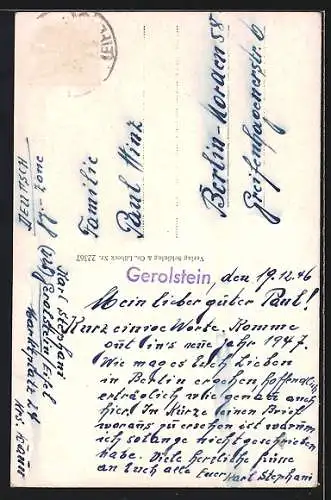 Familie
Paul Hinz
Berlin-Norden 58
Greifenhagenerstr. 6
Verlag Schöning & Co., Lübeck Nr. 22367
Karl Stephani
(22b) Gerolstein Eifel
Marktplatz 24
Gerolstein, den 19.12.46
Mein lieber guter Paul!
Kurz einige Worte. Komme
gut in's neue Jahr 1947.
Wie mag es Euch Lieben
in Berlin ergehen hoffentlich
erträglich wie genau auch
hier. In Kürze einen Brief
woraus zu ersehen ist warum
ich solange nicht geschrieben
habe. Viele herzliche Grüsse
an Euch alle Euer Karl Stephani